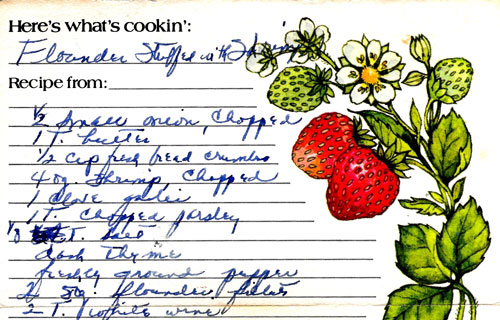 Here's what's cookin':
Flounder Stuffed with Shrimp
Recipe from:
1/2 small onion, chopped
1 T. butter
1/2 cup fresh bread crumbs
4 oz shrimp chopped
1 clove garlic
1 T. chopped parsley
1/8 T. salt
dash thyme
freshly ground pepper
2 flounder fillets
2 T. white wine